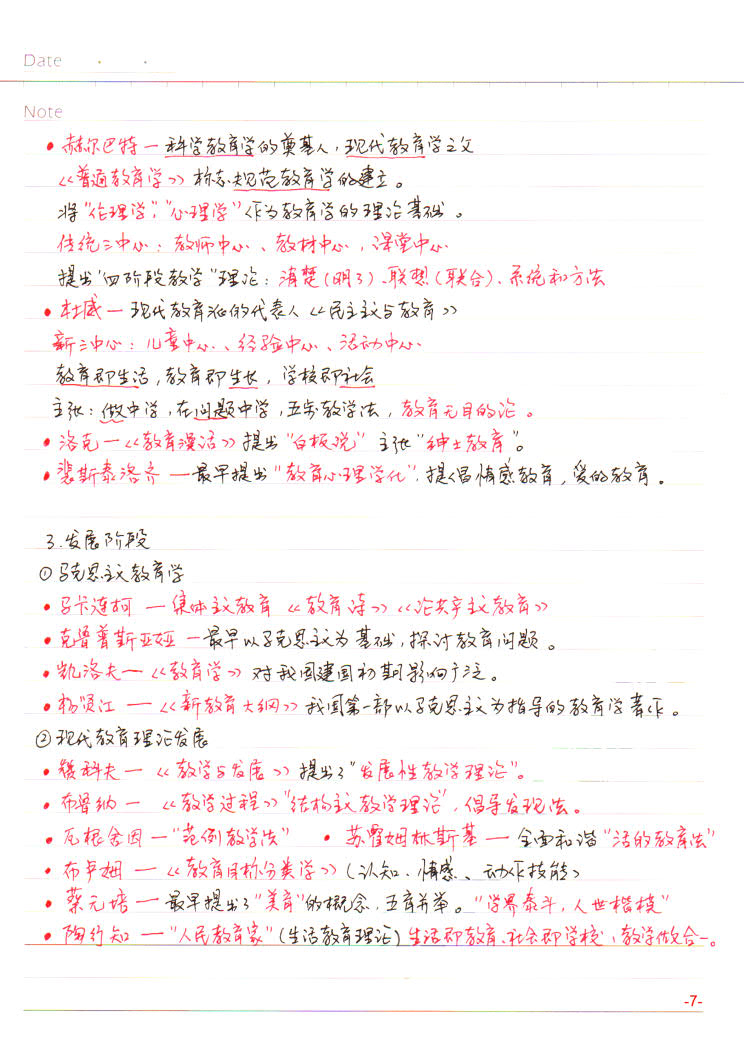 Date · ·
Note
• 赫尔巴特—科学教育学的奠基人,现代教育学之父
《普通教育学》标志规范教育学的建立。
将“伦理学”,“心理学”作为教育学的理论基础。
传统三中心:教师中心、教材中心,课堂中心
提出“四阶段教学”理论:清楚(明了)、联想(联合)、系统和方法
• 杜威—现代教育派的代表人《民主主义与教育》
新三中心:儿童中心、经验中心、活动中心
教育即生活,教育即生长,学校即社会
主张:做中学,在问题中学,五步教学法,教育无目的论。
• 洛克—《教育漫话》提出“白板说”主张“绅士教育”。
• 裴斯泰洛齐—最早提出“教育心理学化”,提倡情感教育,爱的教育。
3.发展阶段
①马克思主义教育学
• 马卡连柯—集体主义教育《教育诗》《论共产主义教育》
• 克鲁普斯亚娅—最早以马克思主义为基础,探讨教育问题。
• 凯洛夫—《教育学》对我国建国初期影响广泛。
• 杨贤江—《新教育大纲》我国第一部以马克思主义为指导的教育学著作。
②现代教育理论发展
• 赞科夫—《教学与发展》提出了“发展性教学理论”。
• 布鲁纳—《教学过程》“结构主义教学理论”,倡导发现法。
• 瓦根舍因—“范例教学法” • 苏霍姆林斯基—全面和谐“活的教育法”
• 布卢姆—《教育目标分类学》(认知、情感、动作技能)
• 蔡元培—最早提出了“美育”的概念,五育并举。“学界泰斗,人世楷模”
• 陶行知—“人民教育家”(生活教育理论)生活即教育、社会即学校、教学做合一。
-7-